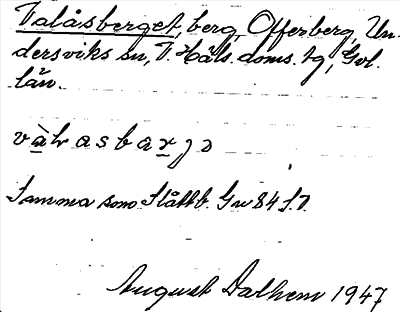 Valåsberget, berg, Offerberg, Un-
dersviks sn, V. Häls. doms. tg, Gvl.
län.
Samma som Slåttb. Gw 84 f. V.
August Dalhem 1947